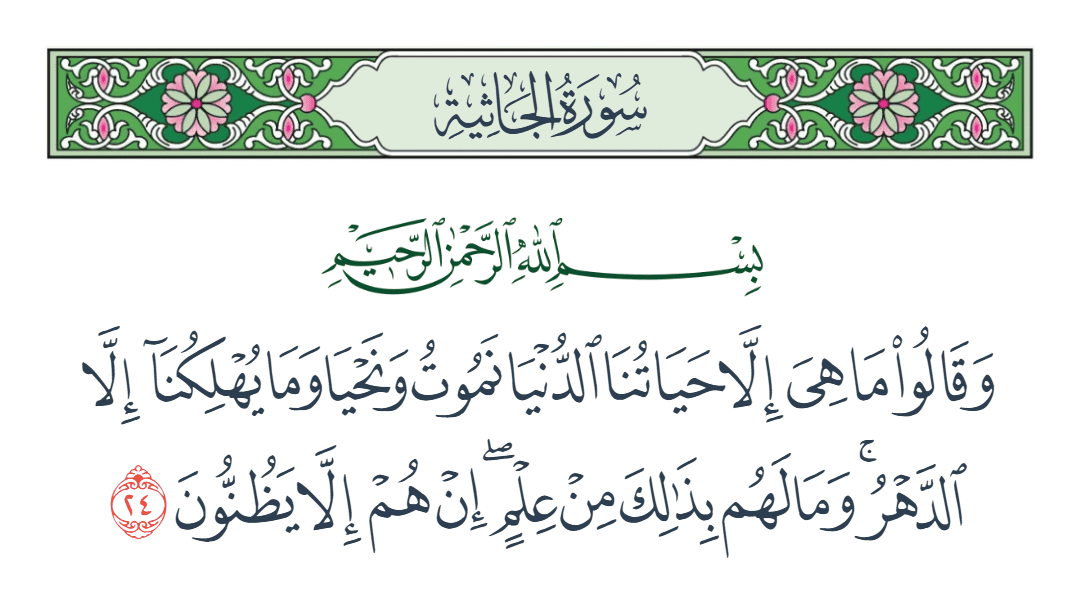 سُورَةُ الجَاثِيَةِ
بِسْمِ ٱللَّهِ ٱلرَّحْمَٰنِ ٱلرَّحِيمِ
وَقَالُوا۟ مَا هِىَ إِلَّا حَيَاتُنَا ٱلدُّنْيَا نَمُوتُ وَنَحْيَا وَمَا يُهْلِكُنَآ إِلَّا
ٱلدَّهْرُ ۚ وَمَا لَهُم بِذَٰلِكَ مِنْ عِلْمٍ ۖ إِنْ هُمْ إِلَّا يَظُنُّونَ ٢٤